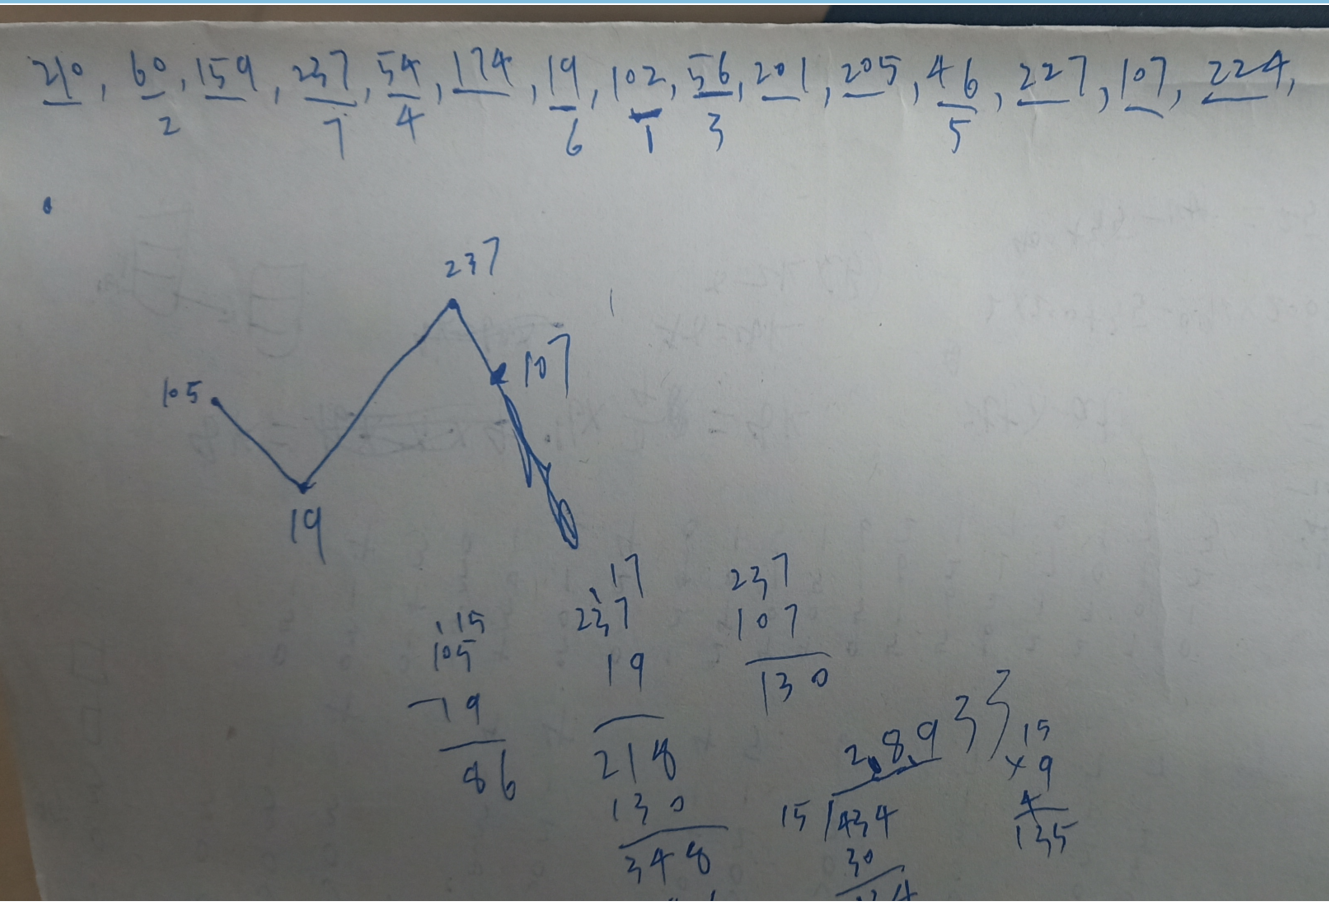 210, 60, 159, 237, 54, 174, 19, 102, 56, 201, 205, 46, 227, 107, 224,
2 7 4 6 1 3 5
237
107
105
19
17
237
237
107
15
105
19
19
130
86
218
2.8933
15
130
×9
15 434
4
348
30
135